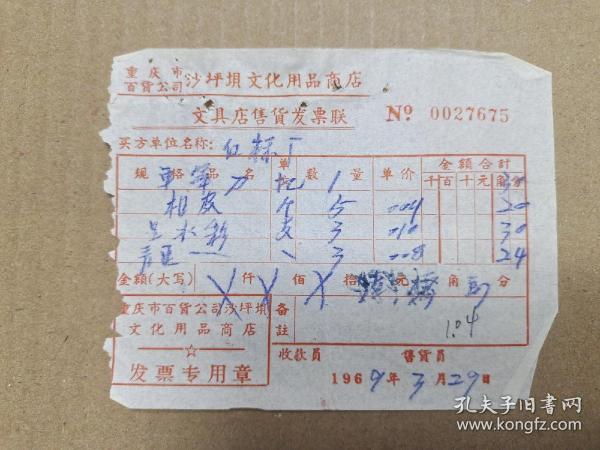 重庆市
百货公司 沙坪垻文化用品商店
文具店售貨发票联 Nº 0027675
买方单位名称:
规格品名 单 数量 单价 金額合計
千百十元角分
1 30
相皮 个 5 004 20
支 3 010 30
3 008 24
金額(大写) 仟 佰 拾 元 角 分
重庆市百貨公司沙坪垻 备
文化用品商店 註
1.04
☆ 收款員 售貨員
发票专用章 1969年3月29日
孔夫子旧书网
www.kongfz.com